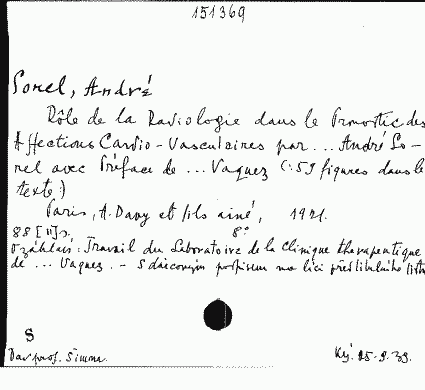 151369
Sorel, André
Rôle de la Radiologie dans le Pronostic des
Affections Cardio-Vasculaires par ... André So-
rel avec Préface de ... Vaquez (:59 figures dans le
texte)
Paris, A. Davy et fils ainé, 1921.
88 [II] s. 8°
V záhlaví: Travail du Laboratoire de la Clinique thérapeutique
de ... Vaquez. - S daicovým podpisem na líci předtitulního listu
S
Dar prof. Simm.
Kyj. 25.9.39.